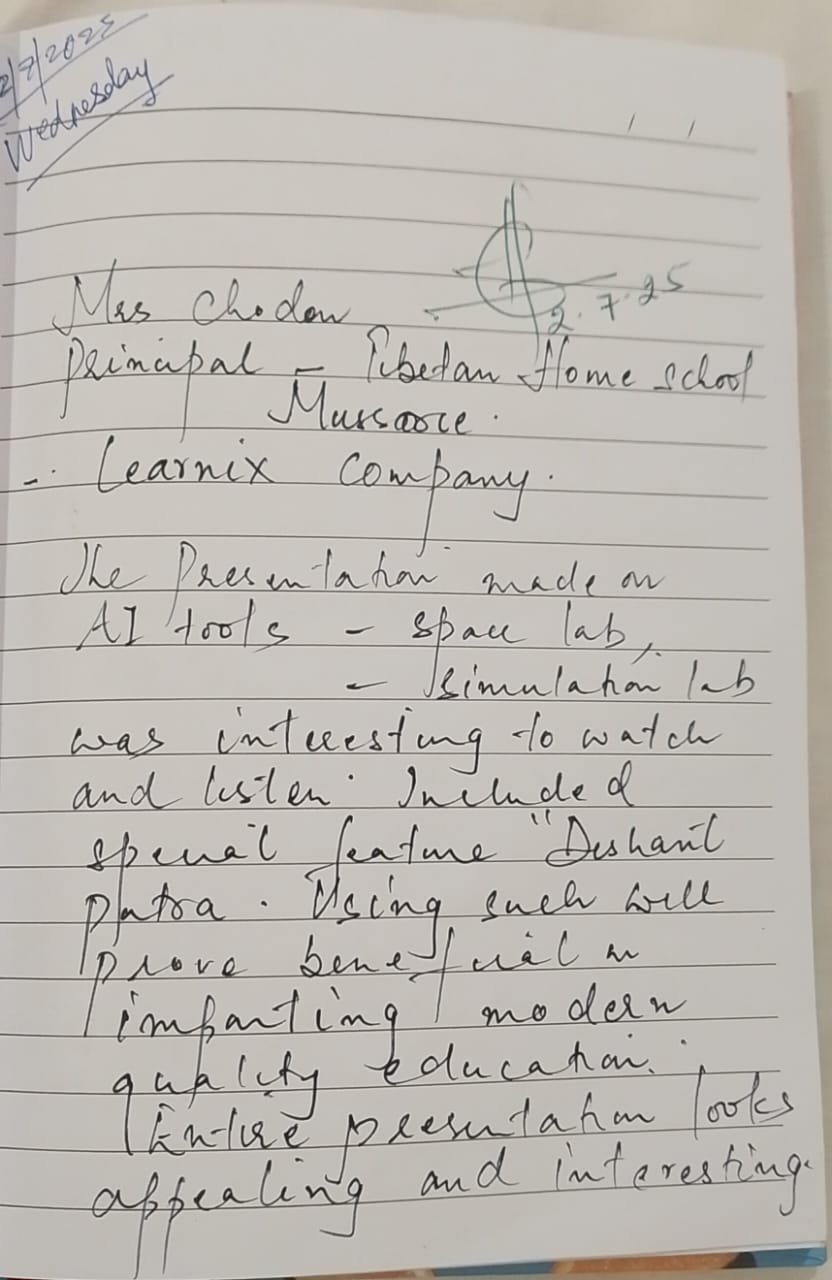 2/7/2025
Wednesday
2.7.25
Mrs Chodon
Principal - Tibetan Home School
Mussoorie.
-. Learnix Company.
The Presentation made on
AI tools - space lab,
- simulation lab
was interesting to watch
and listen. Included
special feature "Dushant
Patra. Using such will
prove beneficial in
imparting modern
quality education.
Entire presentation looks
appealing and interesting.